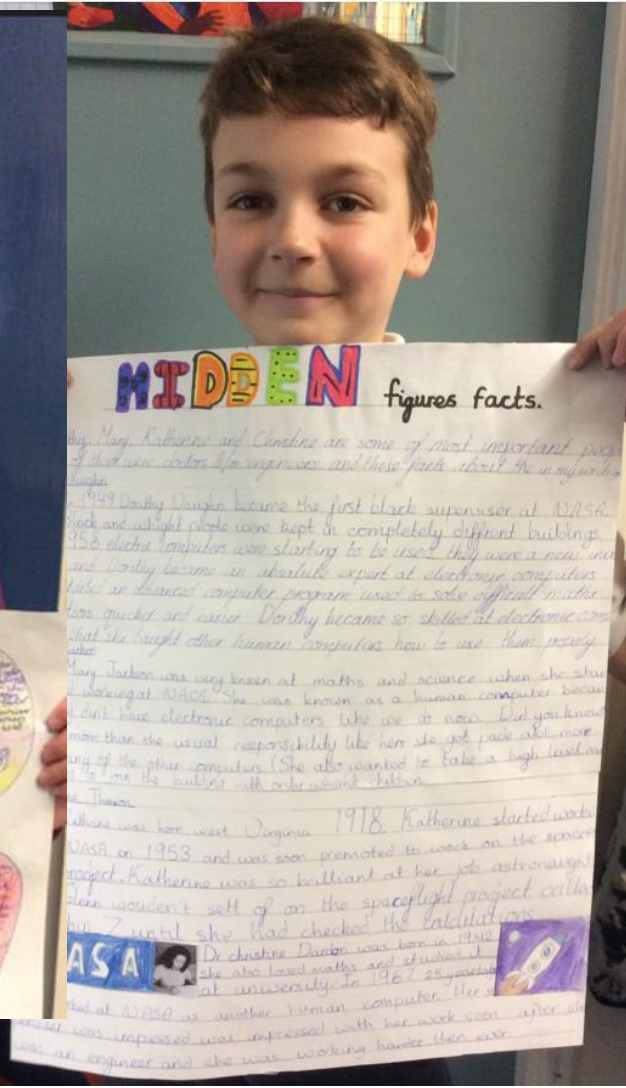 HIDDEN figures facts.
thy, Mary, Katherine and Christine are some of most important peo
of them were doctors engineers and these facts about the in my writin
Vaughn
1949 Dorithy Vaughn became the first black superviser at NASA.
Black and whight people were kept in completely diffrent buildings.
958 electric computers were starting to be used they were a new inve
and Doritey became an absolute expert at electronic computers
an advanced computer program used to solve difficult maths
tions quicker and easier. Dorithy became so skilled at electronic comp
that she taught other human computers how to use them
Jackson
Mary Jackson was very kneen at maths and science when she star
working at NACA. She was known as a human computer becau
didn't have electronic computers like we do now. Did you know
more than the usual responsibility like hers she got more
any of the other computers. (She also wanted to take a high level ma
to join the building with only whight children.
Jhonson
Kathrine was born west Virginia 1918. Katherine started worki
NASA on 1953 and was soon premoted to work on the spacef
project. Katherine was so brilliant at her job astronaught
Glenn wouden't sett of on the spaceflight project calla
ship 7 until she had checked the calculations
ASA
Dr christine Dardon was born in 1942
she also loved maths and studied it
at unversity. In 1967 25 yearold
rked at NASA as another human computer. Her s
was impressed was impressed with her work soon after she
was an engineer and she was working harder then ever